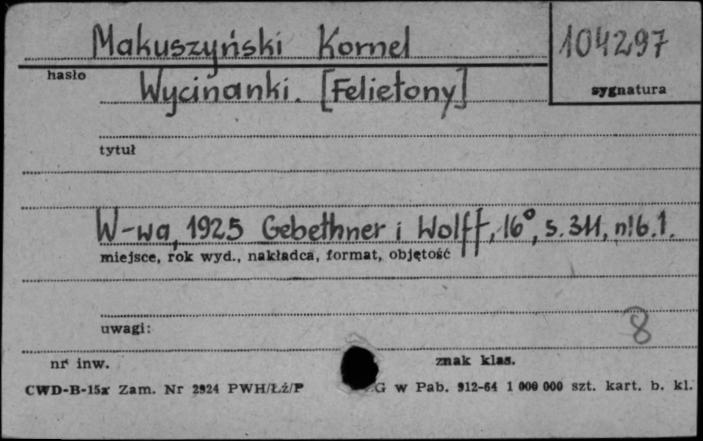 Makuszyński Kornel
104297
hasło
sygnatura
Wycinanki. [Felietony]
tytuł
W-wa, 1925 Gebethner i Wolff, 16°, s. 311, nlb. 1.
miejsce, rok wyd., nakładca, format, objętość
uwagi:
8
nr inw.
znak klas.
CWD-B-15x Zam. Nr 2924 PWH/Łż/P
G w Pab. 912-64 1 000 000 szt. kart. b. kl.